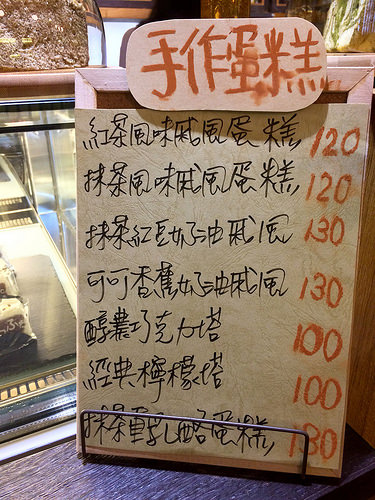 手作蛋糕
紅茶風味戚風蛋糕 120
抹茶風味戚風蛋糕 120
抹茶紅豆奶油戚風 130
可可香蕉奶油戚風 130
醇濃巧克力塔 100
經典檸檬塔 100
抹茶重乳酪蛋糕 130